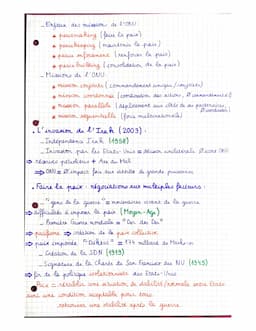 _ Enjeux des mission de l'ONU
• peacemaking (faire la paix)
• peacekeeping (maintenir la paix)
• peace inforcement (renforcer la paix)
• peace building (consolidation de la paix)
_ Missions de l'ONU
• mission conjointe (commandement unique/conjoint)
• mission coordonnée (coordination des actions, ≠ commandements)
• mission parallèle (déploiement aux côtés de ses partenaires,
• mission séquentielle (fois multinationale)
• L'invasion de l'Irak (2003) :
_ Indépendance Irak (1958)
_ Invasion par les Etats-Unis = décision unilatérale
⇒ réserves pétrolières + Arc du Mal
⇒ ONU = Ø impact face aux intérêts de grande puissance
• Faire la paix : négociations aux multiples facteurs :
_ "gens de la guerre" = mercenaires vivant de la guerre
⇒ difficultés d'imposer la paix (Moyen-Age)
_ Première Guerre mondiale = "Der des Der"
⇒ pacifisme ⇒ création de la paix collective
⇒ paix imposée "Diktat" =
_ Création de la SDN (1919)
_ Signature de la Charte de San Francisco des NU (1945)
⇒ fin de la politique isolationniste des Etats-Unis
Paix = rétablir une situation de stabilité/normale entre Etats
dans une condition acceptable pour tous.
retourner une stabilité après la guerre.